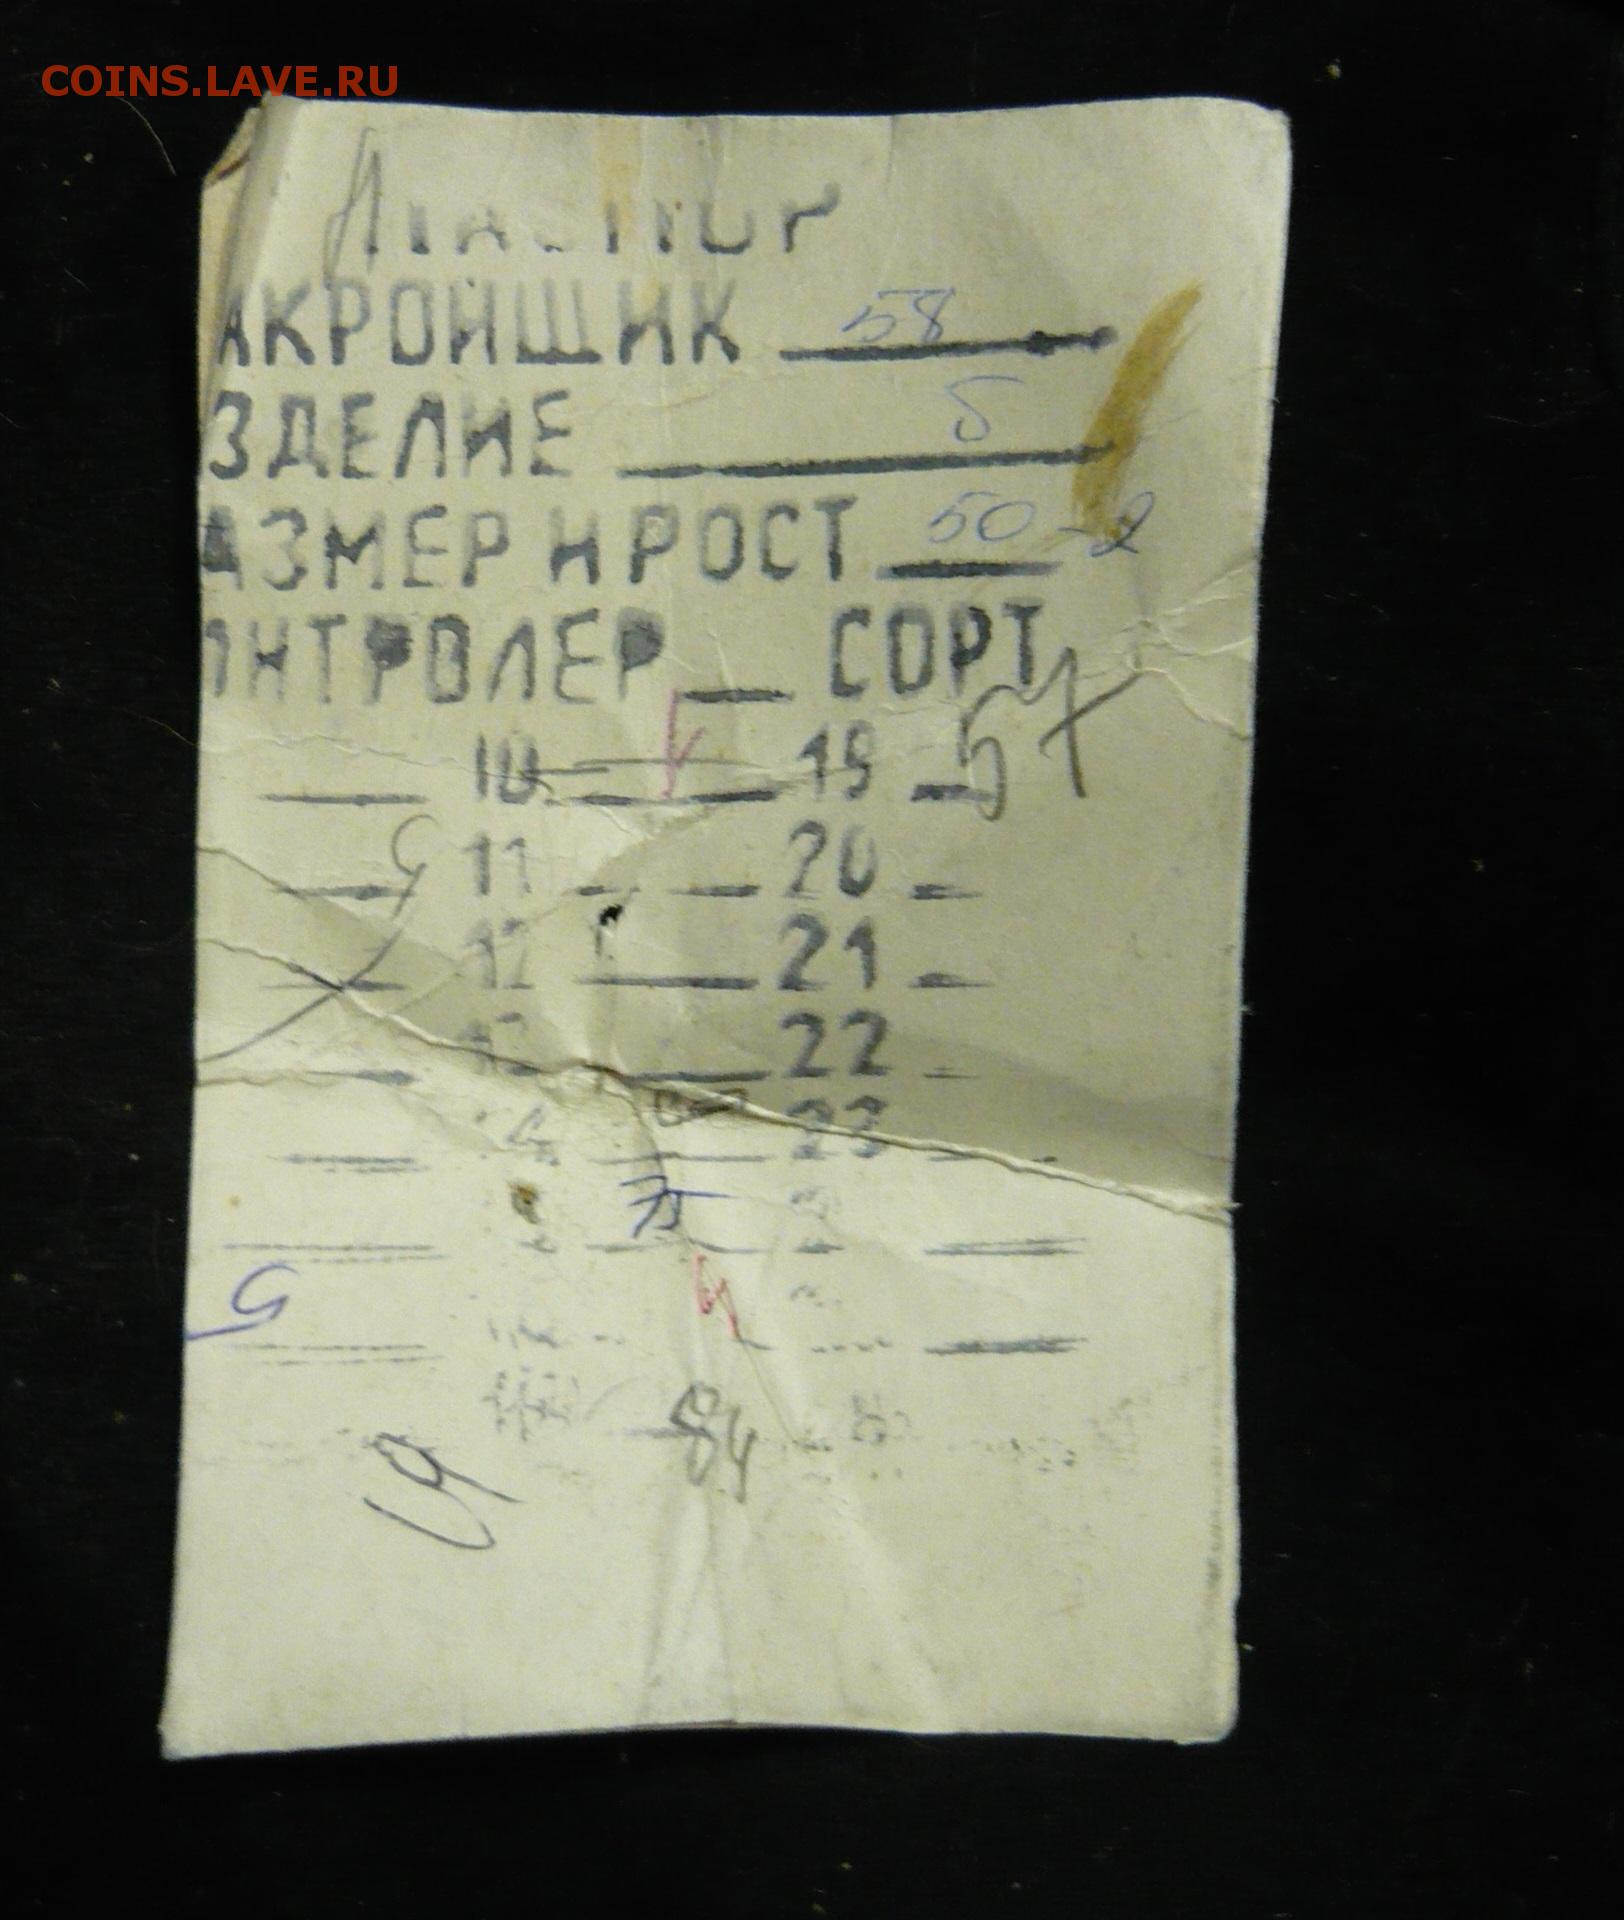 COINS.LAVE.RU
АКРОЙЩИК 58
ЗДЕЛИЕ 5
АЗМЕР И РОСТ 50-2
НТРОЛЕР СОРТ
10 19 57
11 20
12 21
13 22
14 23
84